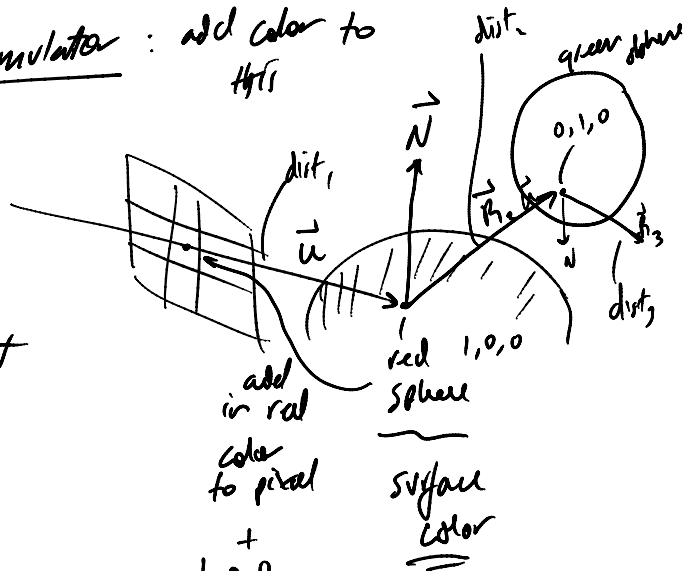 mulator : add color to
this
dist,
green sphere
N
0,1,0
dist,
u
R₂
N
R₃
dist₃
red 1,0,0
sphere
add
in red
color
to pixel
+
surface
color